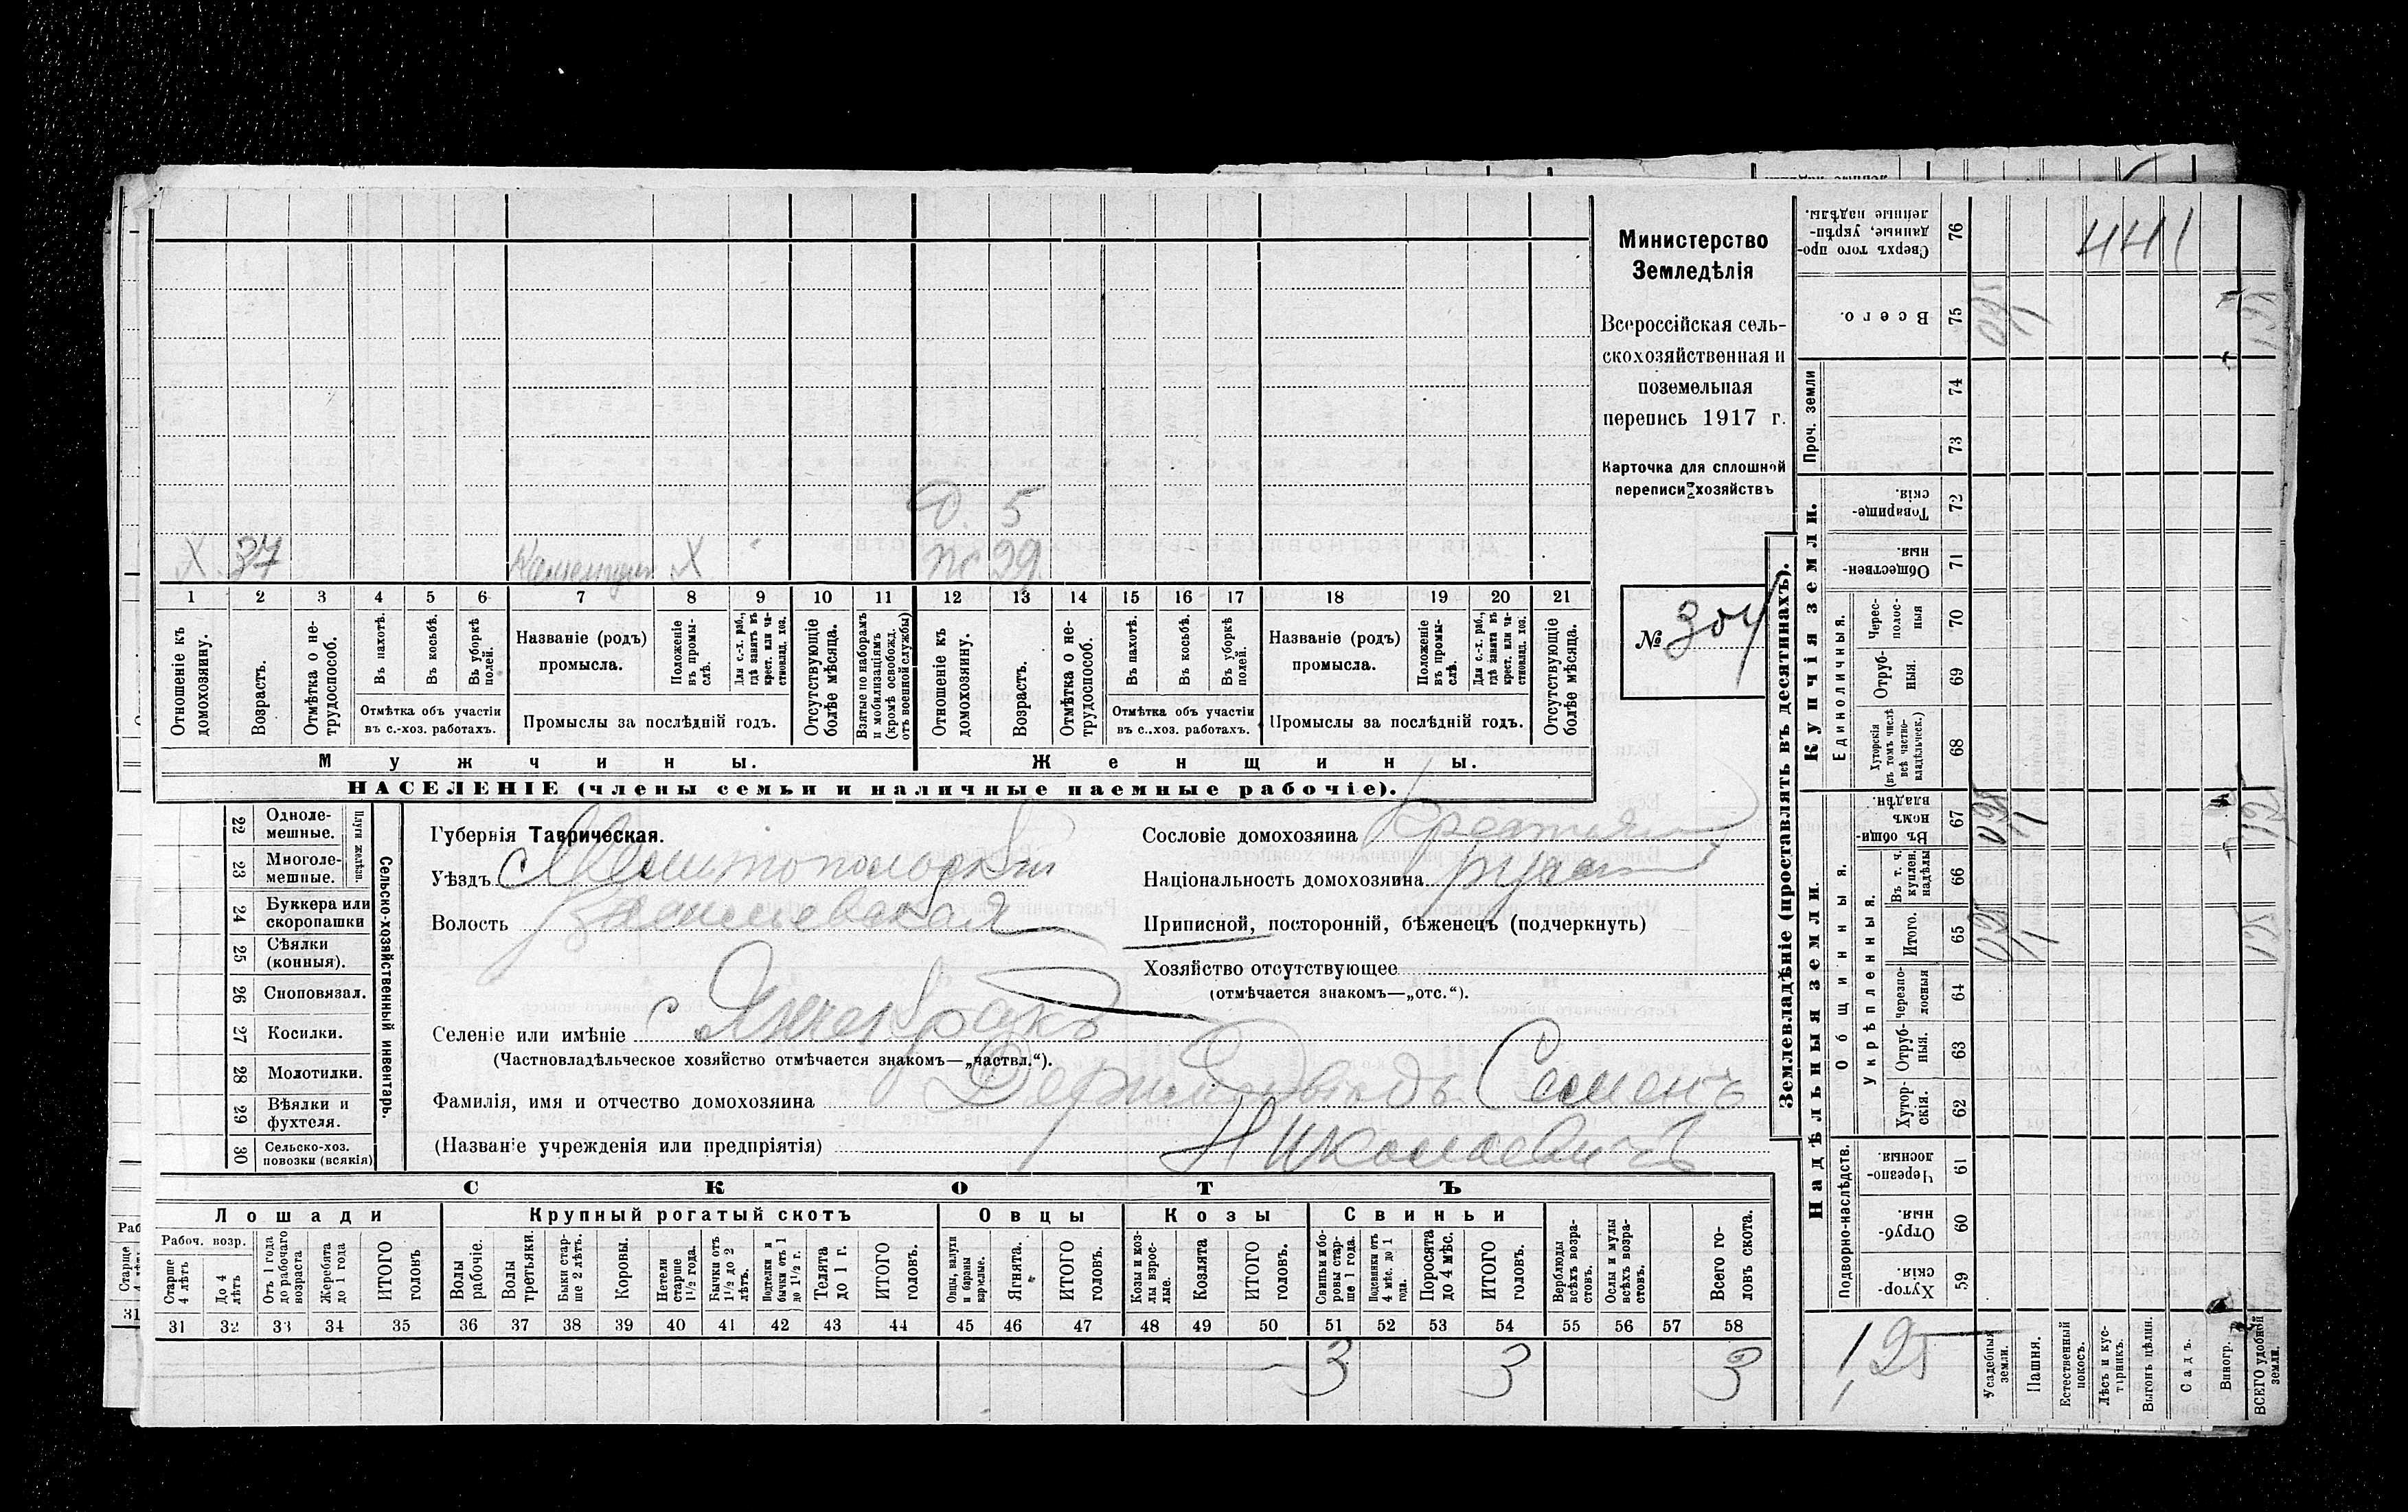 Министерство
Земледѣлія
Всероссійская сель-
скохозяйственная и
поземельная
перепись 1917 г.
Карточка для сплошной
переписи хозяйствъ
№ 304
Х 37 Х
Д. 5
Ж 29
1 2 3 4 5 6 7 8 9 10 11 12 13 14 15 16 17 18 19 20 21
Отношеніе къ домохозяину.
Возрастъ.
Отмѣтка о не-трудоспособ.
Въ пахотѣ.
Въ косьбѣ.
Въ уборкѣ полей.
Отмѣтка объ участіи въ с.-хоз. работахъ.
Названіе (родъ) промысла.
Положеніе въ промы-слѣ.
Для с.-х. раб., гдѣ занятъ въ крест. или ча-стновлад. хоз.
Промыслы за послѣдній годъ.
Отсутствующіе болѣе мѣсяца.
Взятые по наборамъ и мобилизаціямъ (кромѣ освобожд. отъ военной службы)
Отношеніе къ домохозяину.
Возрастъ.
Отмѣтка о не-трудоспособ.
Въ пахотѣ.
Въ косьбѣ.
Въ уборкѣ полей.
Отмѣтка объ участіи въ с.-хоз. работахъ.
Названіе (родъ) промысла.
Положеніе въ промы-слѣ.
Для с.-х. раб., гдѣ занята въ крест. или ча-стновлад. хоз.
Промыслы за послѣдній годъ.
Отсутствующіе болѣе мѣсяца.
Мужчины. Женщины.
НАСЕЛЕНІЕ (члены семьи и наличные наемные рабочіе).
22 Однолемешные.
23 Многолемешные.
Плуги желѣзн.
24 Буккера или скоропашки
25 Сѣялки (конныя).
26 Сноповязал.
27 Косилки.
28 Молотилки.
29 Вѣялки и фухтеля.
30 Сельско-хоз. повозки (всякія)
Сельско-хозяйственный инвентарь.
Губернія Таврическая.
Уѣздъ Мелитопольскій
Волость Васильевская
Селеніе или имѣніе с Янчекракъ
(Частновладѣльческое хозяйство отмѣчается знакомъ—„частвл.“).
Фамилія, имя и отчество домохозяина Семенъ
(Названіе учрежденія или предпріятія) Николаевичъ
Сословіе домохозяина
Національность домохозяина
Приписной, посторонній, бѣженецъ (подчеркнуть)
Хозяйство отсутствующее
(отмѣчается знакомъ—„отс.“).
СКОТЪ
Лошади Крупный рогатый скотъ Овцы Козы Свиньи
Рабоч. возр.
Старше 4 лѣтъ
До 4 лѣтъ
Отъ 1 года до рабочаго возраста
Жеребята до 1 года
ИТОГО головъ
Волы рабочіе.
Волы третьяки.
Быки стар-ше 2 лѣтъ.
Коровы.
Нетели старше 1½ года.
Бычки отъ 1½ до 2 лѣтъ.
Подтелки и бычки отъ 1 до 1½ г.
Телята до 1 г.
ИТОГО головъ.
Овцы, валухи и бараны взрослые.
Ягнята.
ИТОГО головъ.
Козы и коз-лы взрос-лые.
Козлята
ИТОГО головъ.
Свиньи и бо-ровы стар-ше 1 года.
Подсвинки отъ 4 мѣс. до 1 года.
Поросята до 4 мѣс.
ИТОГО головъ.
Верблюды всѣхъ возра-стовъ.
Ослы и мулы всѣхъ возра-стовъ.
Всего го-ловъ скота.
31 32 33 34 35 36 37 38 39 40 41 42 43 44 45 46 47 48 49 50 51 52 53 54 55 56 57 58
3 3 3
Землевладѣніе (проставлять въ десятинахъ).
Надѣльныя земли. Купчія земли. Проч. земли
Подворно-наслѣдств.
Общинныя.
Укрѣпленныя.
Единоличныя.
Хутор-скія. 59
Отруб-ныя. 60
Черезпо-лосныя. 61
Хутор-скія. 62
Отруб-ныя. 63
Черезпо-лосныя 64
Итого. 65
Въ т. ч. куплен. надѣлы 66
Въ общи-номъ владѣн. 67
Хуторскія (въ томъ числѣ всѣ частно-владѣльческ.) 68
Отруб-ныя. 69
Черес-полос-ныя 70
Обществен-ныя 71
Товарище-скія. 72
73
74
Всего. 75
Сверхъ того про-данные, укрѣп-ленные надѣлы. 76
441
1,25
Усадебныя земли.
Пашня.
Естественный покосъ.
Лѣсъ и кус-тарникъ.
Выгонъ цѣлин.
Садъ.
Виногр.
ВСЕГО удобной земли.